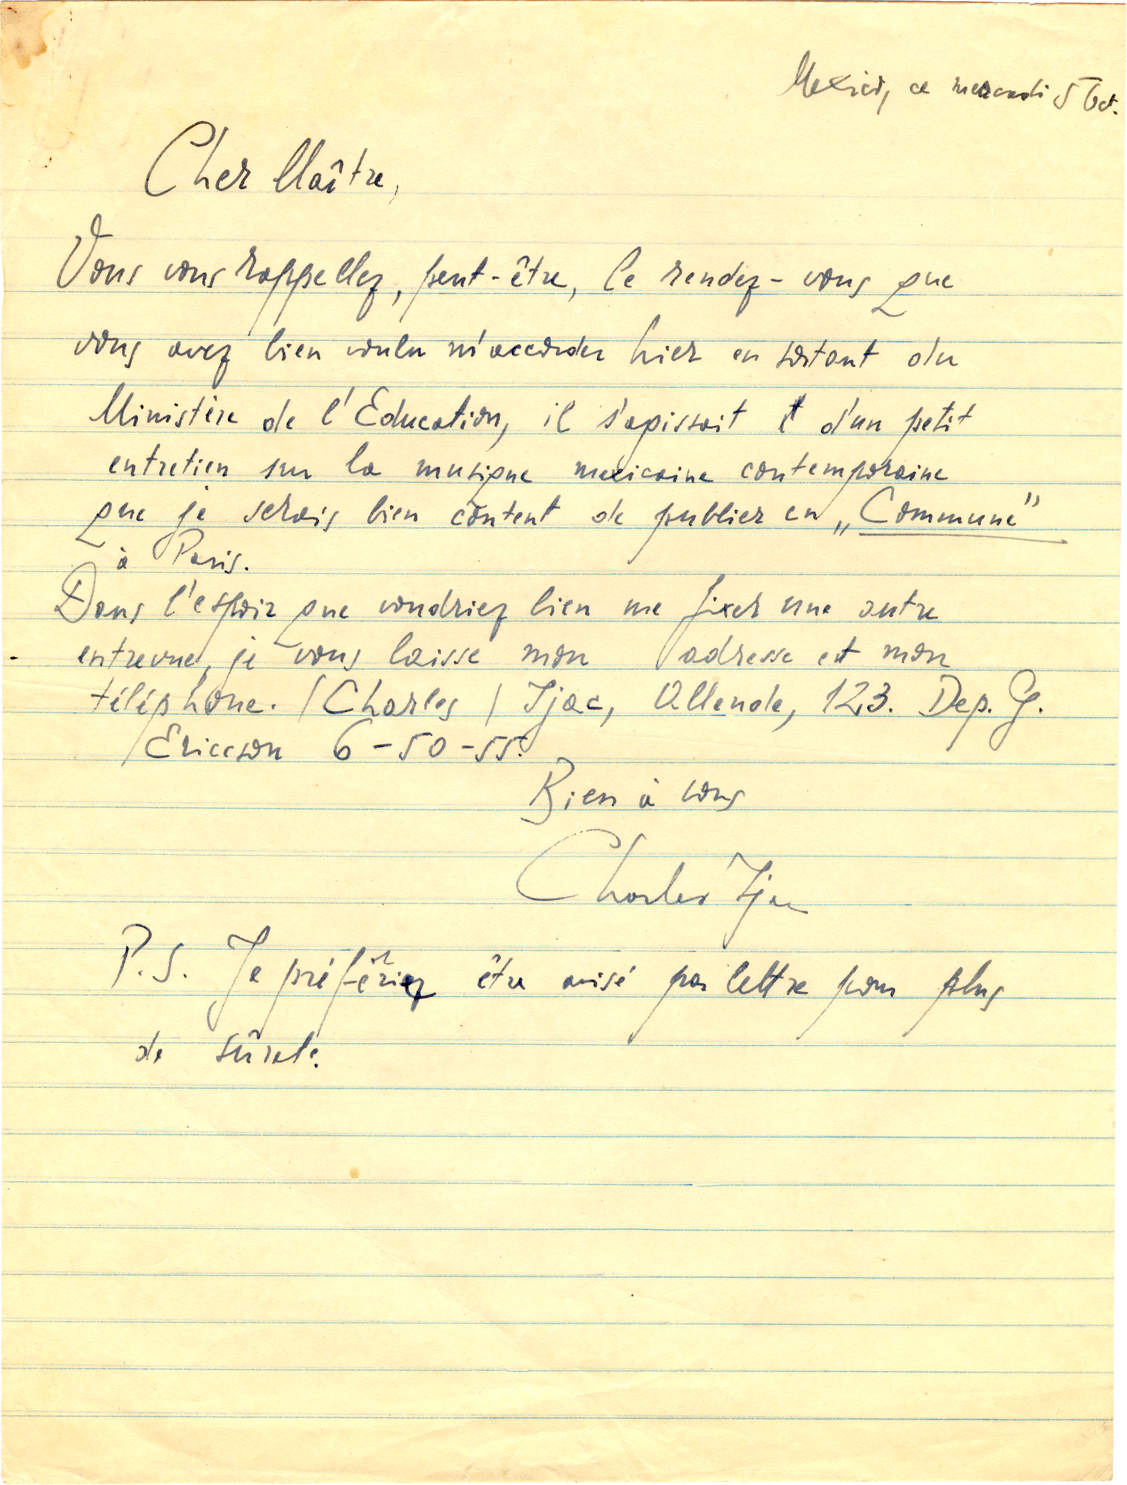 Mexico, ce mercredi 5 Oct.
Cher Maître,
Vous vous rappellez, peut-être, le rendez-vous que
vous avez bien voulu m'accorder hier en sortant du
Ministère de l'Education, il s'agissait d'un petit
entretien sur la musique mexicaine contemporaine
que je serais bien content de publier en „Commune"
à Paris.
Dans l'espoir que voudriez bien me fixer une autre
entrevue, je vous laisse mon adresse et mon
téléphone. /Charles/ Ijac, Allende, 123. Dep. G.
Ericcson 6-50-55.
Bien à vous
Charles Ijac
P.S. Je préfériez être avisé par lettre pour plus
de sûreté.